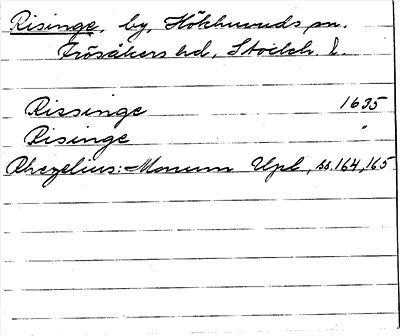 Risinge, by, Hökhuvuds sn.
Frösåkers hd, Stockh. l.
Rissinge 1635
Risinge "
Rhezelius: Monum Upl, ss. 164, 165